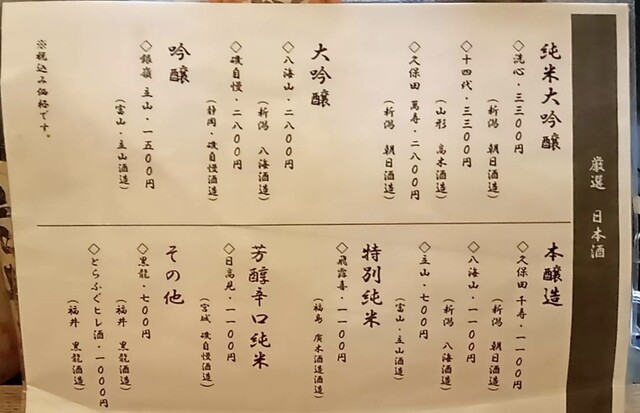 厳選 日本酒
純米大吟醸
◇洗心・三三〇〇円
(新潟 朝日酒造)
◇十四代・三三〇〇円
(山形 高木酒造)
◇久保田 萬寿・二八〇〇円
(新潟 朝日酒造)
大吟醸
◇八海山・二八〇〇円
(新潟 八海酒造)
◇磯自慢・二八〇〇円
(静岡・磯自慢酒造)
吟醸
◇銀嶺 立山・一五〇〇円
(富山・立山酒造)
※税込み価格です。
本醸造
◇久保田 千寿・一一〇〇円
(新潟 朝日酒造)
◇八海山・一一〇〇円
(新潟 八海酒造)
◇立山・七〇〇円
(富山・立山酒造)
特別純米
◇飛露喜・一一〇〇円
(福島 廣木酒造酒造)
芳醇辛口純米
◇日高見・一一〇〇円
(宮城 磯自慢酒造)
その他
◇黒龍・七〇〇円
(福井 黒龍酒造)
◇とらふぐヒレ酒・一〇〇〇円
(福井 黒龍酒造)